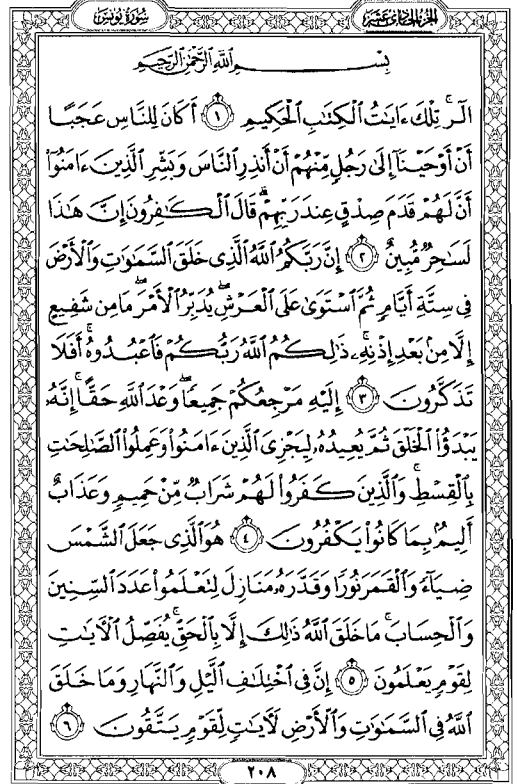 سورة يونس
الجزء الحادي عشر
بِسْمِ اللَّهِ الرَّحْمَٰنِ الرَّحِيمِ
الٓرۚ تِلْكَ ءَايَٰتُ ٱلْكِتَٰبِ ٱلْحَكِيمِ ١ أَكَانَ لِلنَّاسِ عَجَبًا
أَنْ أَوْحَيْنَآ إِلَىٰ رَجُلٍ مِّنْهُمْ أَنْ أَنذِرِ ٱلنَّاسَ وَبَشِّرِ ٱلَّذِينَ ءَامَنُوٓا۟
أَنَّ لَهُمْ قَدَمَ صِدْقٍ عِندَ رَبِّهِمْۗ قَالَ ٱلْكَٰفِرُونَ إِنَّ هَٰذَا
لَسَٰحِرٌ مُّبِينٌ ٢ إِنَّ رَبَّكُمُ ٱللَّهُ ٱلَّذِى خَلَقَ ٱلسَّمَٰوَٰتِ وَٱلْأَرْضَ
فِى سِتَّةِ أَيَّامٍ ثُمَّ ٱسْتَوَىٰ عَلَى ٱلْعَرْشِۖ يُدَبِّرُ ٱلْأَمْرَۖ مَا مِن شَفِيعٍ
إِلَّا مِنۢ بَعْدِ إِذْنِهِۦۚ ذَٰلِكُمُ ٱللَّهُ رَبُّكُمْ فَٱعْبُدُوهُۚ أَفَلَا
تَذَكَّرُونَ ٣ إِلَيْهِ مَرْجِعُكُمْ جَمِيعًاۖ وَعْدَ ٱللَّهِ حَقًّاۚ إِنَّهُۥ
يَبْدَؤُا۟ ٱلْخَلْقَ ثُمَّ يُعِيدُهُۥ لِيَجْزِىَ ٱلَّذِينَ ءَامَنُوا۟ وَعَمِلُوا۟ ٱلصَّٰلِحَٰتِ
بِٱلْقِسْطِۚ وَٱلَّذِينَ كَفَرُوا۟ لَهُمْ شَرَابٌ مِّنْ حَمِيمٍ وَعَذَابٌ
أَلِيمٌۢ بِمَا كَانُوا۟ يَكْفُرُونَ ٤ هُوَ ٱلَّذِى جَعَلَ ٱلشَّمْسَ
ضِيَآءً وَٱلْقَمَرَ نُورًا وَقَدَّرَهُۥ مَنَازِلَ لِتَعْلَمُوا۟ عَدَدَ ٱلسِّنِينَ
وَٱلْحِسَابَۚ مَا خَلَقَ ٱللَّهُ ذَٰلِكَ إِلَّا بِٱلْحَقِّۚ يُفَصِّلُ ٱلْءَايَٰتِ
لِقَوْمٍ يَعْلَمُونَ ٥ إِنَّ فِى ٱخْتِلَٰفِ ٱلَّيْلِ وَٱلنَّهَارِ وَمَا خَلَقَ
ٱللَّهُ فِى ٱلسَّمَٰوَٰتِ وَٱلْأَرْضِ لَءَايَٰتٍ لِّقَوْمٍ يَتَّقُونَ ٦
٢٠٨